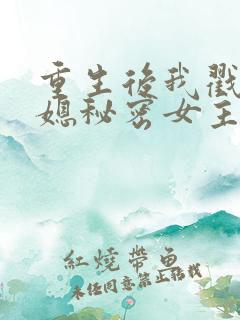 重生後我戳
媳秘密女主
紅燒帶魚
未经同意禁止转载